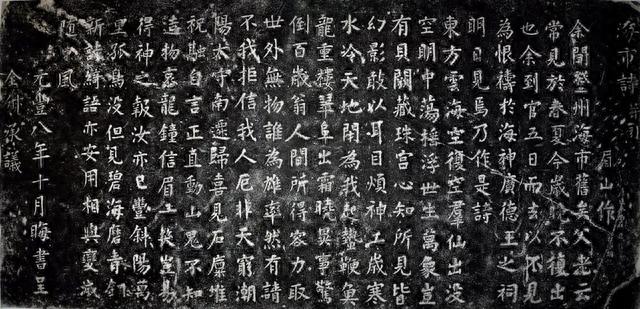 海市詩 眉山作
余聞登州海市舊矣父老云
常見於春夏今歲晚不復出
也余到官五日而去以不見
為恨禱於海神廣德王之祠
明日見焉乃作是詩
東方雲海空復空羣仙出沒
空明中蕩搖浮世生萬象豈
有貝闕藏珠宮心知所見皆
幻影敢以耳目煩神工歲寒
水冷天地閉為我起蟄鞭魚
龍重樓翠阜出霜曉異事驚
倒百歲翁人間所得容力取
世外無物誰為雄率然有請
不我拒信我人厄非天窮潮
陽太守南遷歸喜見石廩堆
祝融自言正直動山鬼不知
造物哀龍鍾信眉一笑豈易
得神之報汝亦已豐斜陽萬
里孤鳥沒但見碧海磨青銅
新詩綺語亦安用相與變滅
隨 風
元豐八年十月晦書呈
全叔承議